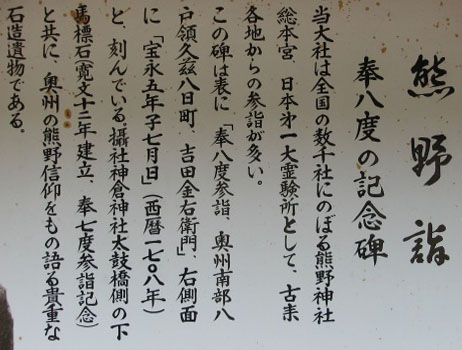 熊野詣
奉八度の記念碑
当大社は全国の数千社にのぼる熊野神社
総本宮 日本才一大霊験所として、古来
各地からの参詣が多い。
この碑は表に「奉八度参詣、奥州南部八
戸領久慈八日町、吉田金右衛門」、右側面
に「宝永五年子七月日」(西暦一七〇八年)
と、刻んでいる。攝社神倉神社太鼓橋側の下
馬標石(寛文十二年建立、奉七度参詣記念)
と共に、奥州の熊野信仰をもの語る貴重な
石造遺物である。